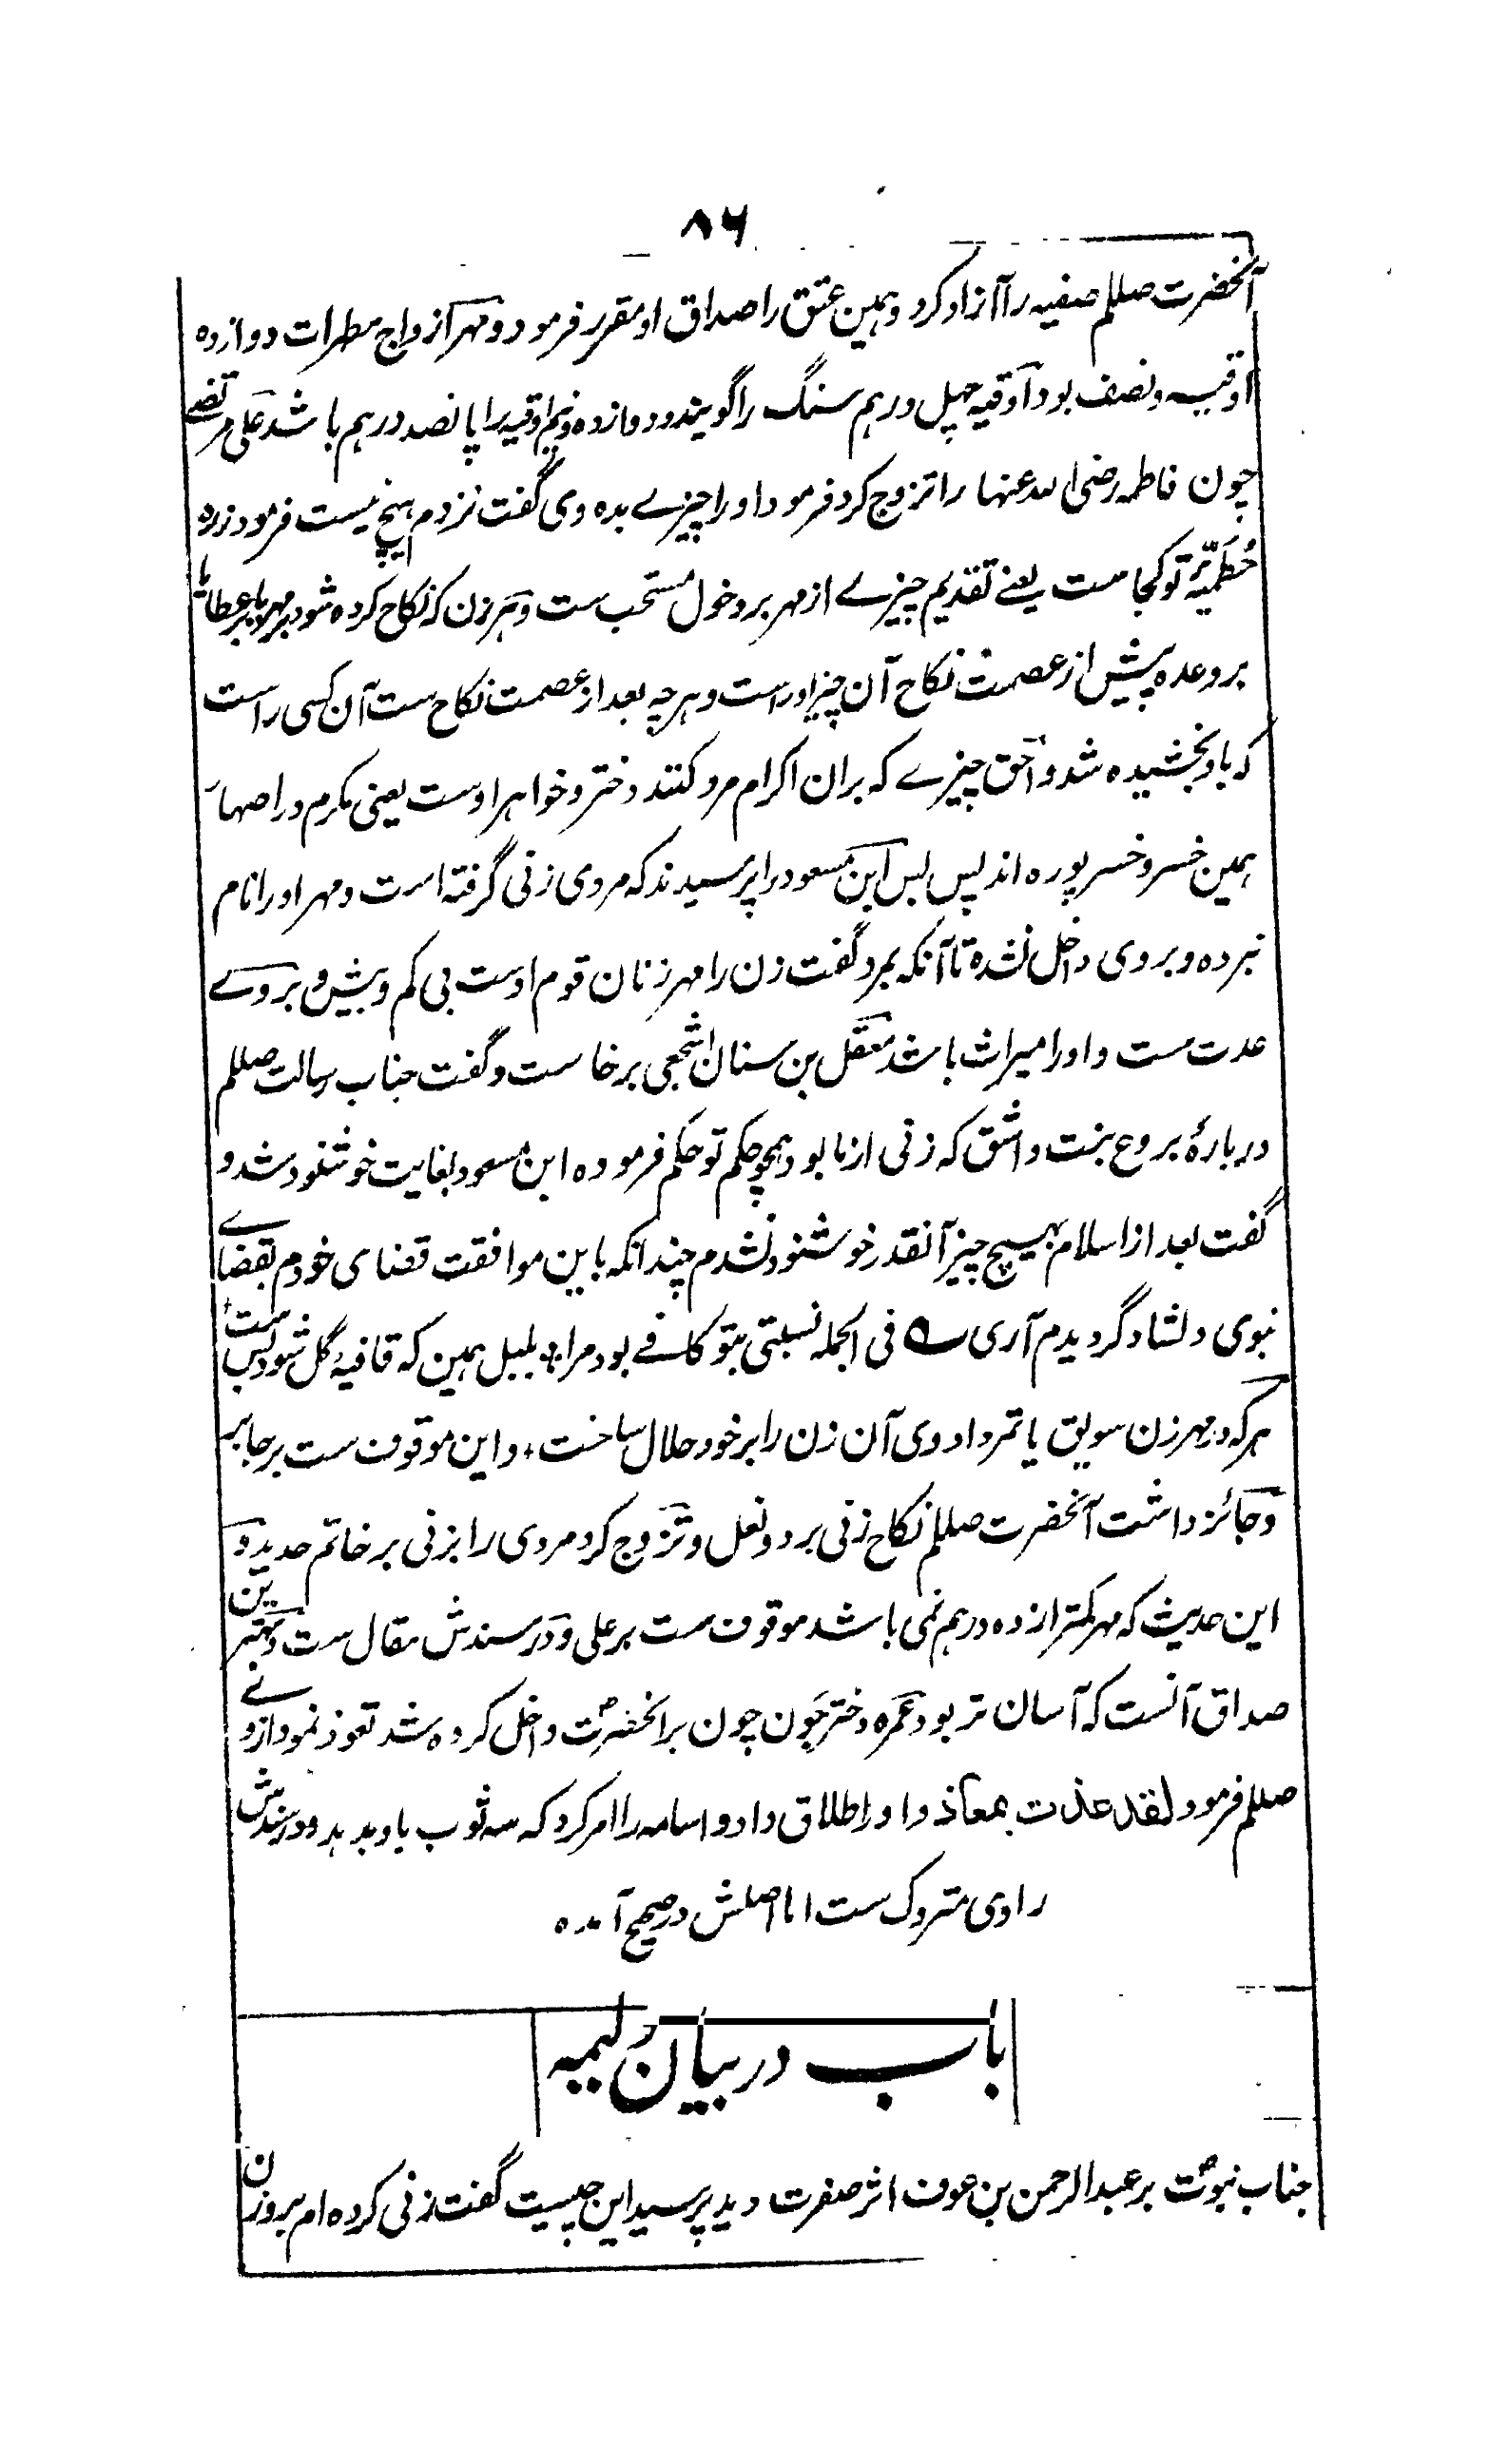 ۸۶
آنحضرت صلعم صفیه را آزاد کرد و همین عتق را صداق او مقرر فرمود و مهر ازواج مطهرات دوازده
اوقیه و نصف بود اوقیه چهل درهم سنگ را گویند و دوازده و نیم اوقیه را پانصد درهم باشد علی مرتضے
چون فاطمه رضی الله عنها را تزوج کرد فرمود او را چیزے بده وی گفت نزدم هیچ نیست فرمود زره
حُطَمِیّه تو کجاست یعنے تقدیم چیزے از مهر بر دخول مستحب ست و هر زن که نکاح کرده شود بر مهر یا بر عطا یا
بر وعده پیش از عصمت نکاح آن چیز او راست و هر چه بعد از عصمت نکاح ست آن کسی راست
که باو بخشیده شد و احق چیزے که بران اکرام مرد کنند دختر و خواهر اوست یعنی مکرم در اصهار
همین خسر و خسرپوره اند پس بس ابن مسعود را پرسیدند که مردی زنی گرفته است و مهر او را نام
نبرده و بر وی داخل نشده تا آنکه بمرد گفت زن را مهر زنان قوم اوست بی کم و بیش و بر وے
عدت ست و او را میراث باشد معقل بن سنان اشجعی برخاست و گفت جناب رسالت صلعم
دربارۀ بروع بنت واشق که زنی از ما بود همچو حکم تو حکم فرموده ابن مسعود بغایت خوشنود شد و
گفت بعد از اسلام بهیچ چیز آنقدر خوشنود نشدم چندانکه باین موافقت قضای خودم بقضاے
نبوی دلشاد گردیدم آری ے فی الجمله نسبتی بتو کافے بود مرا ؛ بلبل همین که قافیۀ گل شود بس ست
هر که در مهر زن سویق یا تمر داد وی آن زن را بر خود حلال ساخت ، و این موقوف ست بر جابر
و جائز داشت آنحضرت صلعم نکاح زنی بر دو نعل و تزوج کرد مردی را بزنی بر خاتم حدید و
این حدیث که مهر کمتر از ده درهم نمی باشد موقوف ست بر علی و در سندش مقال ست و بهترین
صداق آنست که آسان تر بود عمره دختر جون چون بر آنحضرت داخل کرده شد تعوذ نمود از وے
صلعم فرمود لقد عذت بمعاذ و او را طلاق داد و اسامه را امر کرد که سه ثوب باو بدهد و در سندش
راوی متروک ست اما اصلش در صحیح آمده
باب در بیان ولیمه
جناب نبوت بر عبدالرحمن بن عوف اثر صفرت دید پرسید این چیست گفت زنی کرده ام بروزن